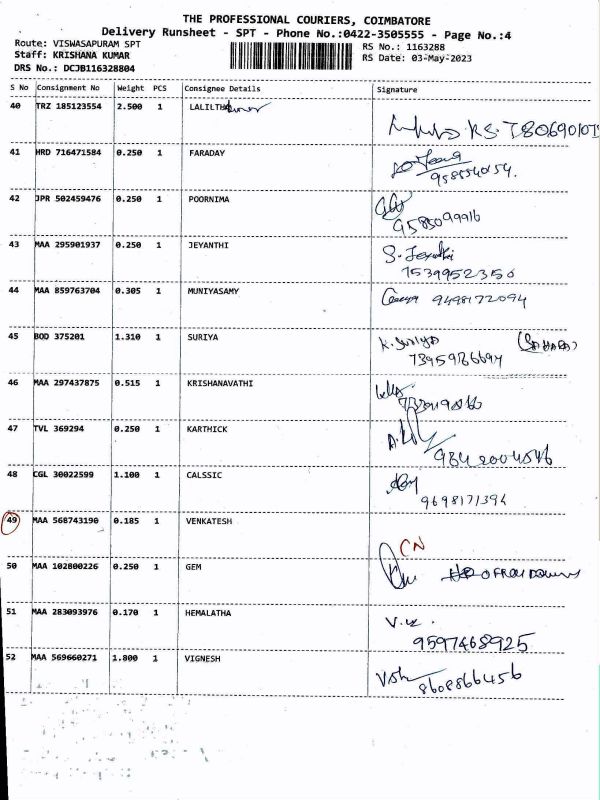 THE PROFESSIONAL COURIERS, COIMBATORE
Delivery Runsheet - SPT - Phone No.:0422-3505555 - Page No.:4
Route: VISWASAPURAM SPT
RS No.: 1163288
Staff: KRISHANA KUMAR
RS Date: 03-May-2023
DRS No.: DCJB116328804
S No Consignment No Weight PCS Consignee Details Signature
40 TRZ 185123554 2.500 1 LALILTH
41 HRD 716471584 0.250 1 FARADAY
42 JPR 502459476 0.250 1 POORNIMA
9585099916
43 MAA 295901937 0.250 1 JEYANTHI S. Jeyanthi
7539952350
44 MAA 859763704 0.305 1 MUNIYASAMY 9498172094
45 BOD 375201 1.310 1 SURIYA K. Suriya
7395986694
46 MAA 297437875 0.515 1 KRISHANAVATHI
47 TVL 369294 0.250 1 KARTHICK
9842004546
48 CGL 30022599 1.100 1 CALSSIC
9698171394
49 MAA 568743190 0.185 1 VENKATESH
CN
50 MAA 102800226 0.250 1 GEM
51 MAA 283093976 0.170 1 HEMALATHA
9597468925
52 MAA 569660271 1.800 1 VIGNESH
8608866456